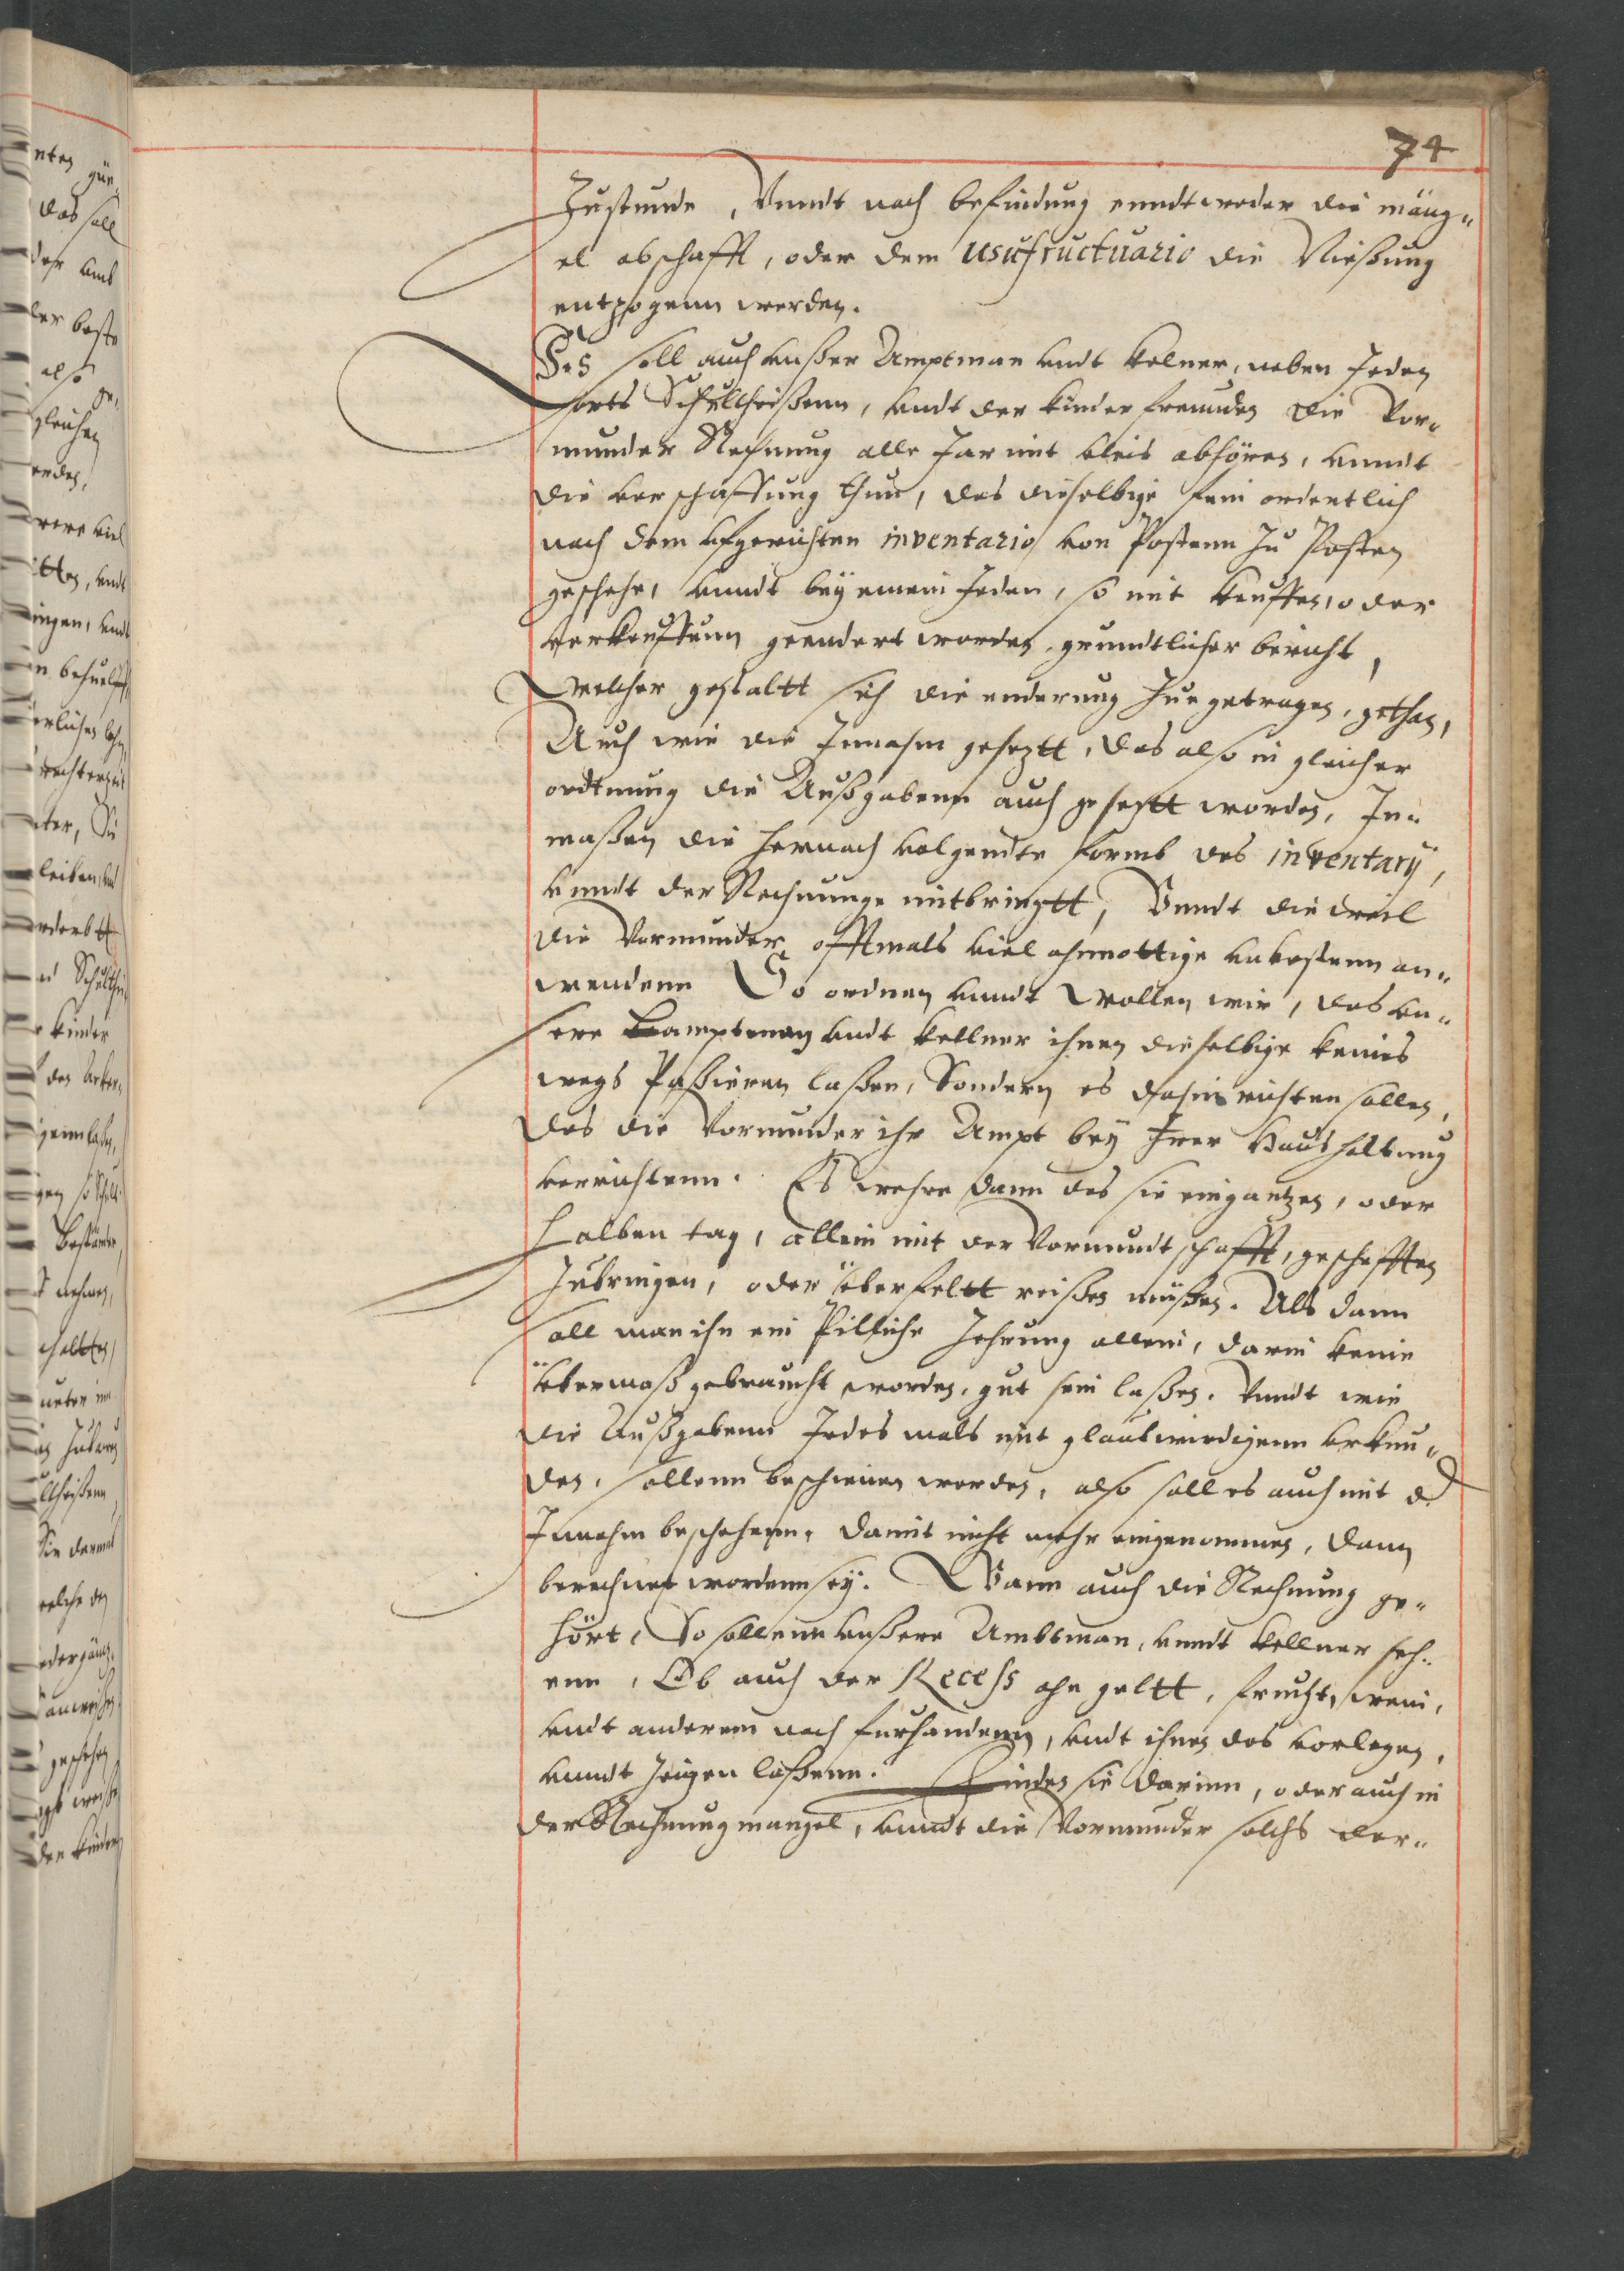 74
Zustunde, Vnndt nach befindung enndtweder die mäng„
el abschafft, oder dem usufructuario die Nießung
entzogenn werden.
Es soll auch vnßer Amptman vndt Kelner, neben Jeden
orts Schultheißenn, vndt der kinder freunden die Vor„
munder Rechnung alle Jar mit vleis abhören, vnndt
die verschaffung thun, das dieselbige fein ordentlich
nach dem vfgerichten inventario von Postenn zu Posten
geschehe, vnndt bey einem Jeden, so mit keuffen, oder
verkeuffenn geendert worden, grundtlicher bericht,
welcher gestaltt sich die enderung zue getragen, gethan,
Auch wie die Innahm geseztt, das also in gleicher
ordtnung die Außgabenn auch gesettt worden, In„
maßen die hernach volgendte formb des inventarÿ,
vnndt der Rechnunge mitbringtt, Vnndt die weil
die Vormunder offtmals viel ohnnottige vnkostenn an„
wendenn So ordnen vnndt wollen wir, das vn„
sere Amptman vndt kellner ihnen dieselbige keines
wegs Passieren laßen, Sondern es dahin richten sollen,
das die Vormunder ihr Ampt bey Irer Haushaltung
verrichtenn. Es wehre dann das sie ein gantzen, oder
halben tag, allein mit der Vormundtschafft, geschefften
Zubringen, oder über feltt reißen müßen. Als dann
soll man ihn ein Pilliche Zehrung allein, darin keine
übermaß gebraucht worden, gut sein laßen. Vnndt wie
die Außgabenn Jedes mals mit glaubwirdigenn vrkun„
den, sollenn bescheinen werden, also soll es auch mit d
Innahm beschehenn, damit nicht mehr eingenommen, dann
berechnet wordenn seÿ. Wann auch die Rechnung ge„
hört, So sollenn vnßere Ambtman, vnndt kellner seh„
enn, Ob auch der Recess ahn geltt, frucht, wein,
vndt anderem noch furhandenn, vndt ihnen das vorlegen,
vnndt Zeigen laßenn. Finden sie darinn, oder auch in
der Rechnung mangel, vnndt die Vormunder solchs der„